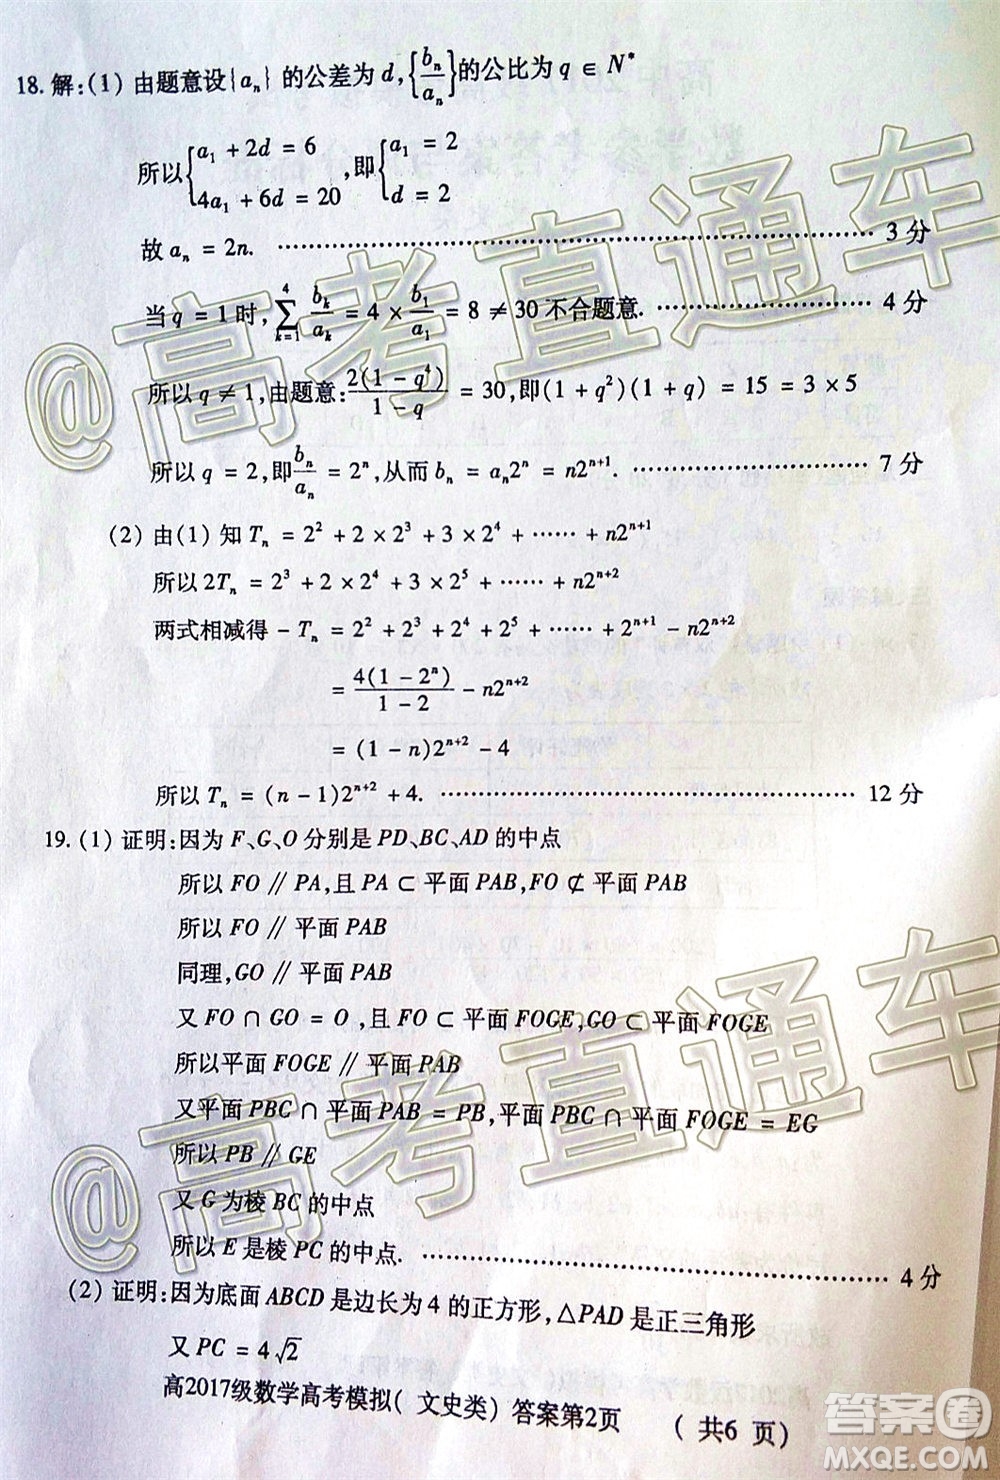 18. 解:(1) 由题意设{aₙ} 的公差为 d, {bₙ/aₙ}的公比为 q ∈ N*
所以{a₁ + 2d = 6, 4a₁ + 6d = 20 ,即{a₁ = 2, d = 2
故 aₙ = 2n. …………………… 3 分
当 q = 1 时, ∑(k=1→4) bₖ/aₖ = 4 × b₁/a₁ = 8 ≠ 30 不合题意. …………………… 4 分
所以 q ≠ 1, 由题意: 2(1 − q⁴)/(1 − q) = 30, 即(1 + q²)(1 + q) = 15 = 3 × 5
所以 q = 2, 即 bₙ/aₙ = 2ⁿ, 从而 bₙ = aₙ2ⁿ = n2ⁿ⁺¹. …………………… 7 分
(2) 由(1) 知 Tₙ = 2² + 2 × 2³ + 3 × 2⁴ + …… + n2ⁿ⁺¹
所以 2Tₙ = 2³ + 2 × 2⁴ + 3 × 2⁵ + …… + n2ⁿ⁺²
两式相减得 − Tₙ = 2² + 2³ + 2⁴ + 2⁵ + …… + 2ⁿ⁺¹ − n2ⁿ⁺²
= 4(1 − 2ⁿ)/(1 − 2) − n2ⁿ⁺²
= (1 − n)2ⁿ⁺² − 4
所以 Tₙ = (n − 1)2ⁿ⁺² + 4. …………………… 12 分
19. (1) 证明:因为 F、G、O 分别是 PD、BC、AD 的中点
所以 FO // PA, 且 PA ⊂ 平面 PAB, FO ⊄ 平面 PAB
所以 FO // 平面 PAB
同理, GO // 平面 PAB
又 FO ∩ GO = O , 且 FO ⊂ 平面 FOGE, GO ⊂ 平面 FOGE
所以平面 FOGE // 平面 PAB
又平面 PBC ∩ 平面 PAB = PB, 平面 PBC ∩ 平面 FOGE = EG
所以 PB // GE
又 G 为棱 BC 的中点
所以 E 是棱 PC 的中点. …………………… 4 分
(2) 证明:因为底面 ABCD 是边长为 4 的正方形, △PAD 是正三角形
又 PC = 4√2
高2017级数学高考模拟( 文史类) 答案第2页 ( 共6 页)
@高考直通车
@高考直通车
答案圈
MXQE.COM